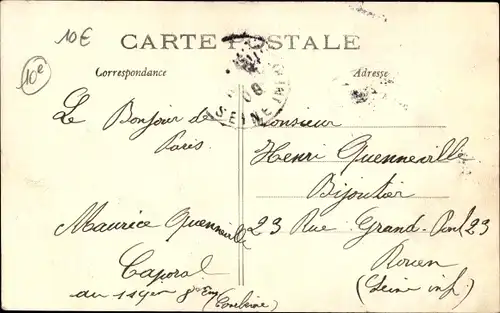 10€
10€
CARTE POSTALE
Correspondance
Adresse
Le Bonjour de
Paris.
Maurice Quenneville
Caporal
SEINE
08
Monsieur
Henri Quenneville
Bijoutier
23 Rue Grand-Pont 23
Rouen
(Seine inf)